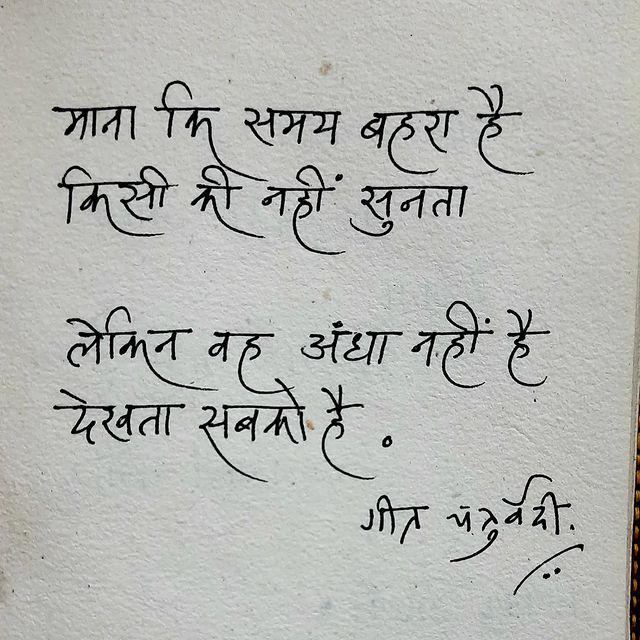 माना कि समय बहरा है
किसी की नहीं सुनता
लेकिन वह अंधा नहीं है
देखता सबको है .
गीत चतुर्वेदी.